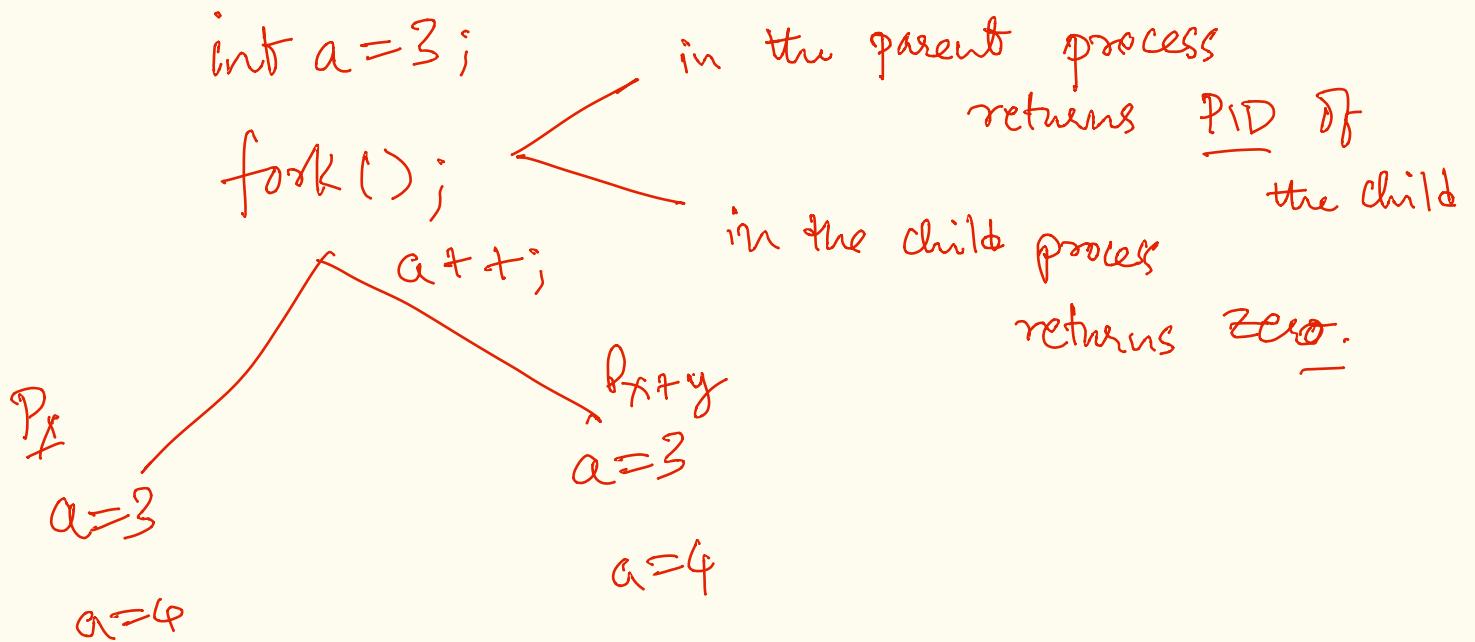 int a=3;
in the parent process
returns PID of
the child
fork();
in the child process
returns zero.
a++;
Px
a=3
a=4
Px+y
a=3
a=4